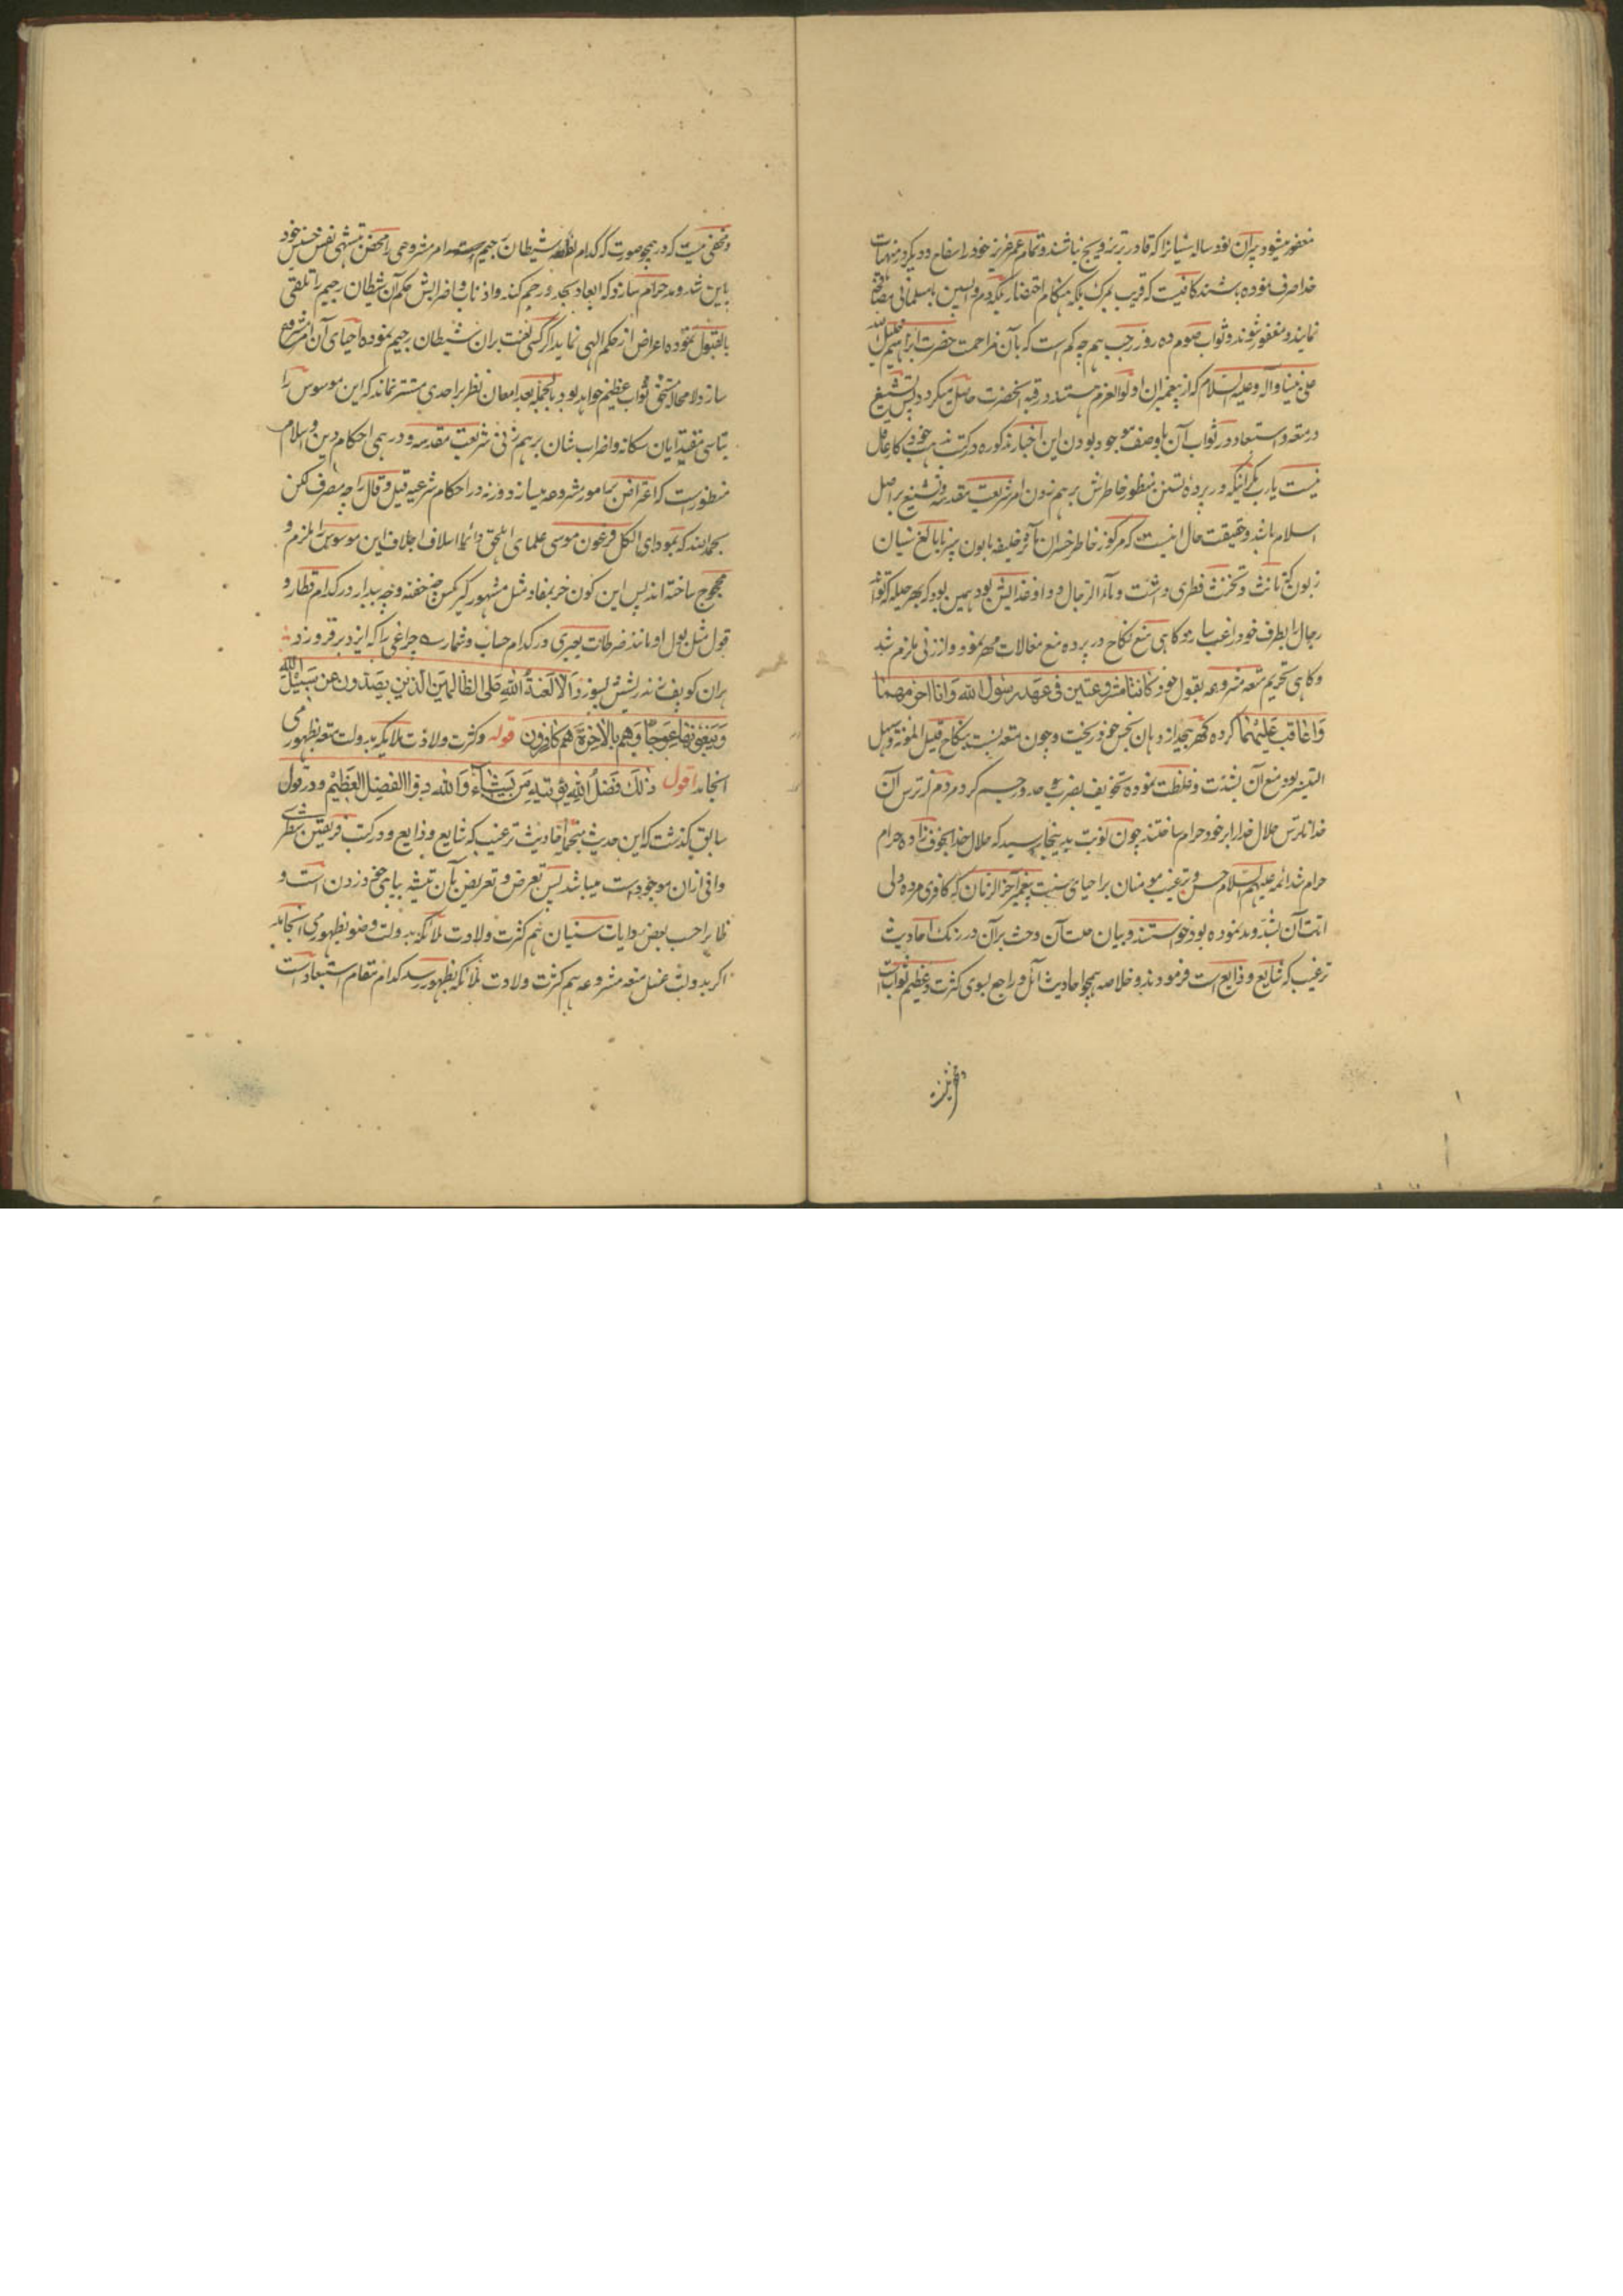 مغفور میشود پیران نود ساله شیانرا که قادر بر تزویج نباشند و تمام عمر عزیز خود را در سفاح و دیگر منهیات
خدا صرف نموده باشند کافیست که قریب بمرگ بلکه هنگام احتضار یکدم واپسین با مسلمانی مصافحه
نمایند و مغفور شوند و ثواب صوم ده روز رجب هم چه کم است که بآن مزاحمت حضرت ابراهیم خلیل الله
علی نبینا و آله و علیه السلام که از پیغمبران اولوالعزم هستند در قبه آنحضرت حاصل میگردد پس تشنیع
در متعه و استبعاد در ثواب آن با وصف موجود بودن این اخبار مذکوره در کتب مذهب خود کار عاقل
نیست یارب مگر اینکه در پرده تسنن منظور خاطرش برهم زدن امر شریعت مقدسه و تشنیع بر اصل
اسلام باشد و حقیقت حال اینست که مرکوز خاطر خسران مآثر خلیفه مابون پیر نابالغ سنیان
زبون که تانث و تخنث فطری داشت و ماء الرجال دوا و غذایش بود همین بود که بهر حیله که تواند
رجال را بطرف خود راغب سازد و گاهی منع نکاح در پرده منع مغالات مهر نمود و از زنی ملزم شد
و گاهی تحریم متعه مشروعه بقول خود کانتا مشروعتین فی عهد رسول الله وانا احرمهما
واعاقب علیهما کرده گهر بجد از دهان نجس خود ریخت و چون متعه نسبت بنکاح قلیل المؤنة و سهل
التیسر بود منع آن بشدت و غلظت نموده تخویف بضرب حد و رجم کرد مردم از ترس آن
خدا ناترس حلال خدا را بر خود حرام ساختند چون نوبت بدینجا رسید که حلال خدا بخوف زاده حرام
حرام شد ائمه علیهم السلام حسن ترغیب مومنان بر احیای سنت پیغمبر آخر الزمان که کافری مرده دلی
اماتت آن بشد و مد نموده بود خواستند و بیان حلت آن و حث بر آن در رنگ احادیث
ترغیب که شایع و ذایع است فرمودند و خلاصه همچو احادیث آئل و راجع بسوی کثرت و عظیم ثواب است
و مخفی نیست که در همچو صورت که کدام شیطان رجیم امر مشروعی را محض بتشهی نفس خسیس خود
باین شد و مد حرام سازد که ابعاد بحد و رجم کند و اذناب و اضرابش حکم آن شیطان رجیم را تلقی
بالقبول نموده اعراض از حکم الهی نمایند اگر کسی لعنت بر آن شیطان رجیم نموده احیای آن امر مشروع
سازد لا محاله مستحق ثواب عظیم خواهد بود بالجمله بعد امعان نظر بر احدی مستتر نماند که این موسوس را
بتاسی مقتدایان سگانه و اضراب شان برهم زنی شریعت مقدسه و درهمی احکام دین و اسلام
منظور است که اعتراض بامور مشروعه میسازد و رنه در احکام شرعیه قیل و قال را چه مصرف لکن
بحمد الله که بمودای لکل فرعون موسی علمای اهل حق دائما اسلاف اجلاف این موسوس را ملزم و
محجوج ساخته اند پس این کون خر بمفاد مثل مشهور کیر کس چه خفته و چه بیدار در کدام قطار و
قول مثل بول او مانند ضرطات بعیری در کدام حساب و شمار ؎ چراغی را که ایزد برفروزد
هران کو پف زند ریشش بسوزد الا لعنة الله علی الظالمین الذین یصدون عن سبیل الله
و یبغونها عوجا و هم بالآخرة هم کافرون قوله و کثرت ولادت ملائکه بدولت متعه بظهور می
انجامد اقول ذلک فضل الله یؤتیه من یشاء والله ذوالفضل العظیم و در قول
سابق گذشت که این حدیث بنجمله احادیث ترغیب که شایع و ذایع و در کتب فریقین شطری
وافی ازان موجود است میباشد پس تعرض و تعریض بآن تیشه بپای خود زدن است و
ظاهرا حسب بعض روایات سنیان هم کثرت ولادت ملائکه بدولت وضو بظهور می انجامد
اگر بدولت غسل متعه مشروعه هم کثرت ولادت ملائکه بظهور رسد کدام مقام استبعاد است